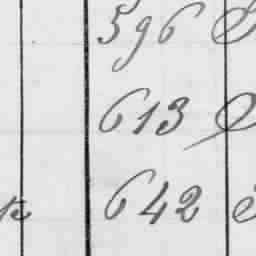 596
613
642